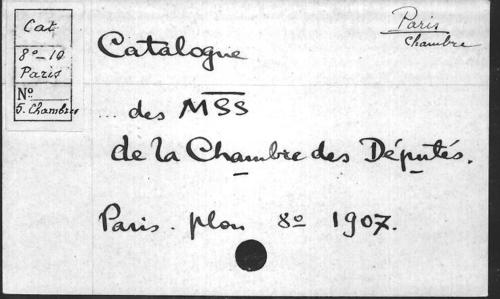 Cat
8º-10
Paris
Nº
5. Chambre
Paris
Chambre
Catalogue
... des MSS
de la Chambre des Députés.
Paris. plon 8º 1907.